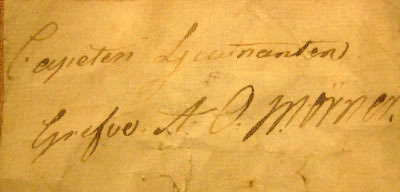 Capeten Lieutnanten
Grefve. A. O. Mörner.